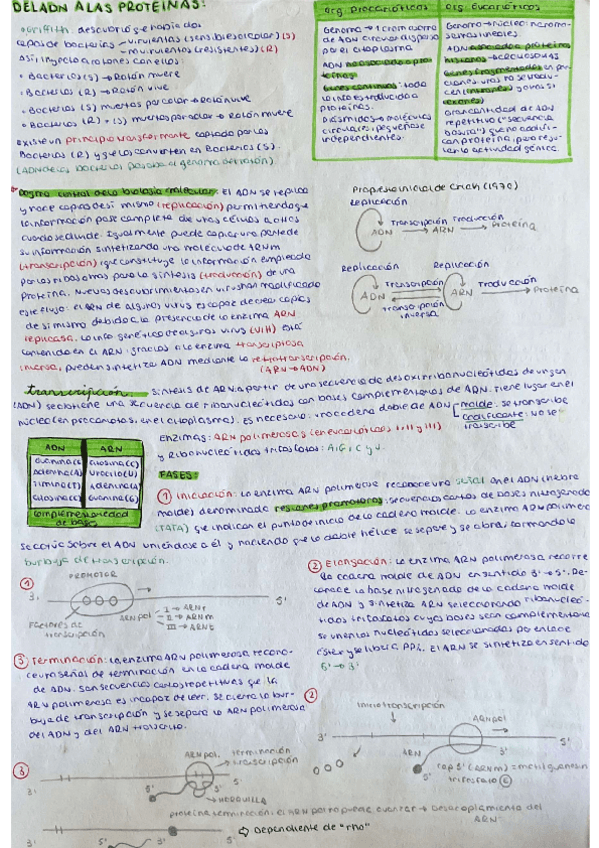 DEL ADN A LAS PROTEÍNAS:
Griffith: descubrió q había dos
cepas de bacterias → virulentas (sensibles al calor) (S)
→ no virulentas (resistentes) (R)
Así, inyectó a ratones con ellas:
• Bacterias (S) → Ratón muere
• Bacterias (R) → Ratón vive
• Bacterias (S) muertas por calor → Ratón vive
• Bacterias (R) + (S) muertas por calor → Ratón muere
Existe un principio transformante captado por las
Bacterias (R) y q las convierten en Bacterias (S).
(ADN de las bacterias pasaba al genoma del ratón)
Org. Procarióticos
Genoma → 1 cromosoma
de ADN circular disperso
por el citoplasma
ADN no asociado a pro
teínas
Genes continuos: toda
la info es traducida a
proteínas
Plásmidos → moléculas
circulares pequeñas e
independientes.
Org. Eucarióticos
Genoma → núcleo: n cromo-
somas lineales.
ADN asociado a proteínas
histonas → CROMOSOMAS
Genes fragmentados en por
ciones, unas no se tradu-
cen (intrones) y otras sí
(exones)
Gran cantidad de ADN
repetitivo ("secuencia
basura") que no codifi-
can proteína, pero regu-
lan la actividad génica.
Dogma central de la biología molecular: El ADN se replica
y hace copias de sí mismo (replicación) permitiendo q
la información pase completa de unas células a otras
cuando se dividen. Igualmente puede copiar una parte de
su información sintetizando una molécula de ARNm
(transcripción) q constituye la información empleada
por los ribosomas para la síntesis (traducción) de una
proteína. Nuevos descubrimientos en virus han modificado
este flujo: el ARN de algunos virus es capaz de crear copias
de sí mismo debido a la presencia de la enzima ARN
replicasa. La info genética de algunos virus (VIH) está
contenida en el ARN; gracias a la enzima transcriptasa
inversa, pueden sintetizar ADN mediante la retrotranscripción.
(ARN → ADN)
Propuesta inicial de Crick (1970)
Replicación
Transcripción Traducción
ADN → ARN → Proteína
Replicación Replicación
Transcripción Traducción
ADN ARN Proteína
Transcripción
inversa
Transcripción. Síntesis de ARN a partir de una secuencia de desoxirribonucleótidos de origen
(ADN) se obtiene una secuencia de ribonucleótidos con bases complementarias de ADN. Tiene lugar en el
núcleo (en procariotas, en el citoplasma). Es necesario: una cadena doble de ADN molde: se transcribe
codificante: no se
transcribe
Enzimas: ARN polimerasas (en eucarióticas I, II y III)
y Ribonucleótidos trifosfatos: A, G, C y U.
ADN ARN
Guanina (G) Citosina (C)
Adenina (A) Uracilo (U)
Timina (T) Adenina (A)
Citosina (C) Guanina (G)
Complementariedad
de bases
FASES:
① Iniciación: La enzima ARN polimerasa reconoce una señal en el ADN (hebra
molde) denominada regiones promotoras, secuencias cortas de bases nitrogenadas
(TATA) que indican el punto de inicio de la cadena molde. La enzima ADN polimerasa
se coloca sobre el ADN uniéndose a él y haciendo que la doble hélice se separe y se abra, formando la
burbuja de transcripción.
① PROMOTOR
3'
5'
Factores de
transcripción
ARN pol
I → ARNr
II → ARNm
III → ARNt
② Elongación: La enzima ARN polimerasa recorre
la cadena molde de ADN en sentido 3' → 5'. Re-
conoce la base nitrogenada de la cadena molde
de ADN y sintetiza ARN seleccionando ribonucleó-
tidos trifosfatos cuyas bases sean complementarias
se unen los nucleótidos seleccionados por enlace
éster y se libera PPi. El ARN se sintetiza en sentido
5' → 3'
③ Terminación: La enzima ARN polimerasa recono-
ce una señal de terminación en la cadena molde
de ADN. Son secuencias cortas repetitivas que la
ARN polimerasa es incapaz de leer. Se cierra la bur-
buja de transcripción y se separa la ARN polimerasa
del ADN y del ARN transcrito.
②
Inicio transcripción
ARN pol
3'
5'
ARN
5'
cap 5' (ARNm) = metilguanosín
trifosfato (G)
③
ARN pol.
terminación
transcripción
3'
5'
5'
HORQUILLA
Proteína terminación: el ARN pol no puede avanzar → Desacoplamiento del
ARN
3'
5'
5'
⇨ Dependiente de "rho"